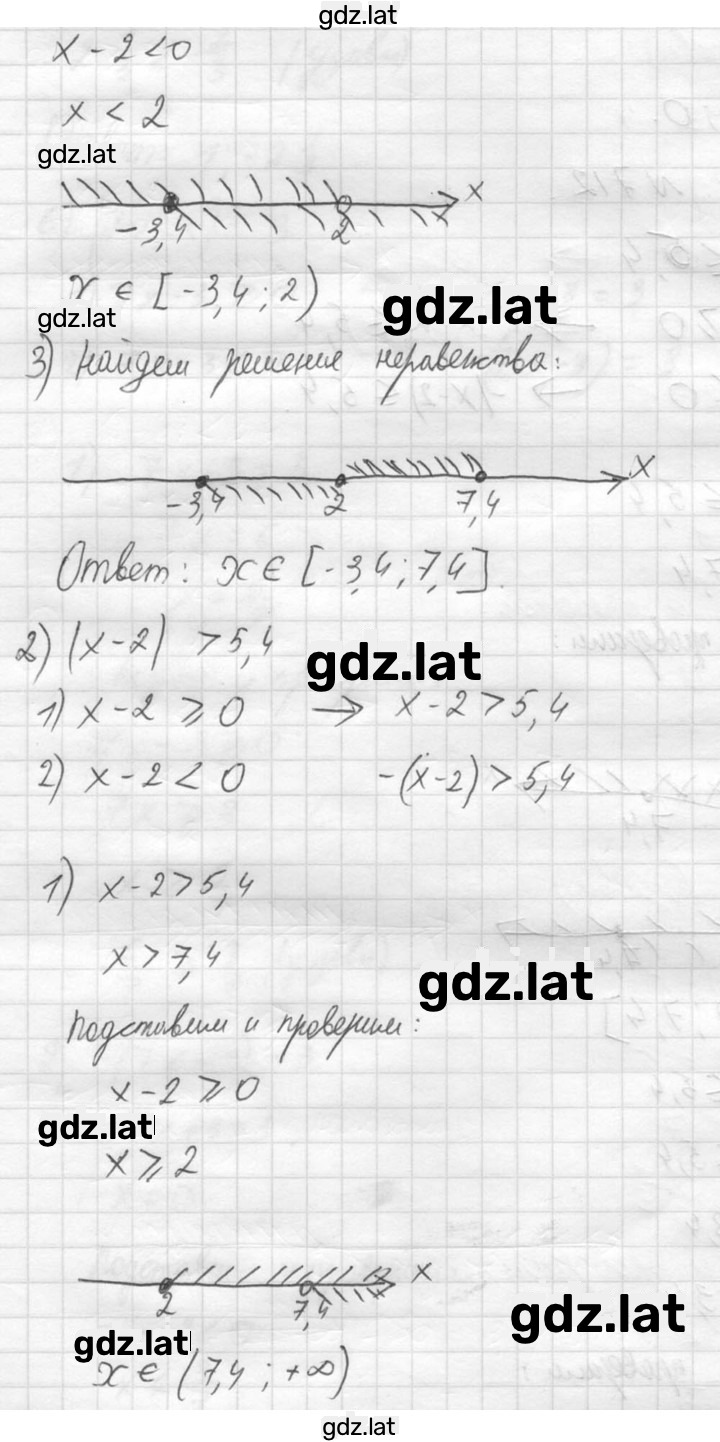 gdz.lat
x - 2 < 0
x < 2
gdz.lat
x
-3,4 2
x ∈ [-3,4 ; 2)
gdz.lat
gdz.lat
3) Найдем решение неравенства:
x
-3,4 2 7,4
Ответ: x ∈ [-3,4 ; 7,4].
2) |x-2| > 5,4
gdz.lat
1) x - 2 ⩾ 0 → x - 2 > 5,4
2) x - 2 < 0 -(x-2) > 5,4
1) x - 2 > 5,4
x > 7,4
gdz.lat
Подставим и проверим:
x - 2 ⩾ 0
gdz.lat
x ⩾ 2
x
2 7,4
gdz.lat
gdz.lat
x ∈ (7,4 ; +∞)
gdz.lat